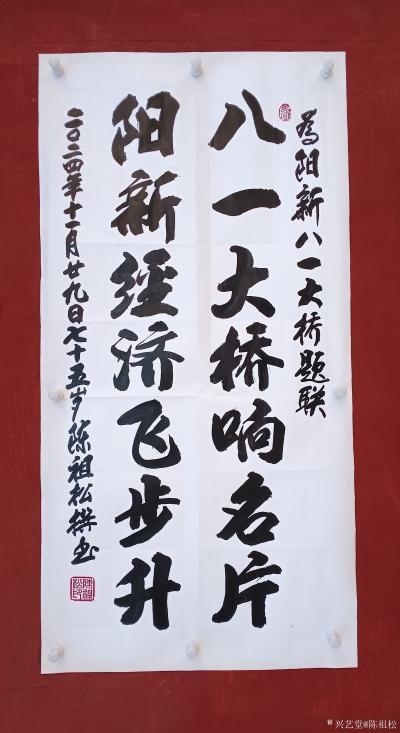 为阳新八一大桥题联
八一大桥响名片
阳新经济飞步升
二〇二四年十一月廿九日七十五岁陈祖松撰书
兴艺堂@陈祖松